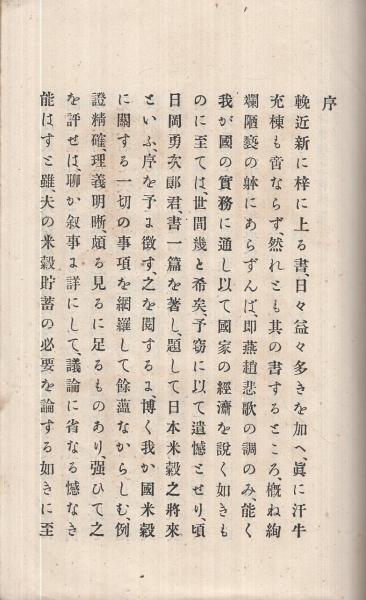 序
輓近新に梓に上る書、日々益々多きを加へ、眞に汗牛
充棟も啻ならず、然れとも其の書するところ、概ね絢
爛陋褻の躰にあらずんば、即燕趙悲歌の調のみ、能く
我が國の實務に通し以て國家の經濟を說く如きも
のに至ては、世間幾と希矣、予窃に以て遺憾とせり、頃
日岡勇次郎君書一篇を著し、題して日本米穀之將來
といふ、序を予に徴す、之を閱するに、博く我か國米穀
に關する一切の事項を網羅して餘蘊なからしむ、例
證精確、理義明晰、頗る見るに足るものあり、强ひて之
を評せは、聊か叙事に詳にして、議論に省なる憾なき
能はすと雖、夫の米穀貯蓄の必要を論する如きに至